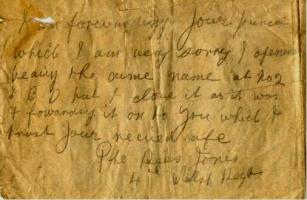 I am forwarding your purce
which I am very sorry I opened
the same name at No 2
& B D but I close it as it was
& fowarding it on to you which I
trust your recieve safe
Pte Jones
4 Welsh Regt